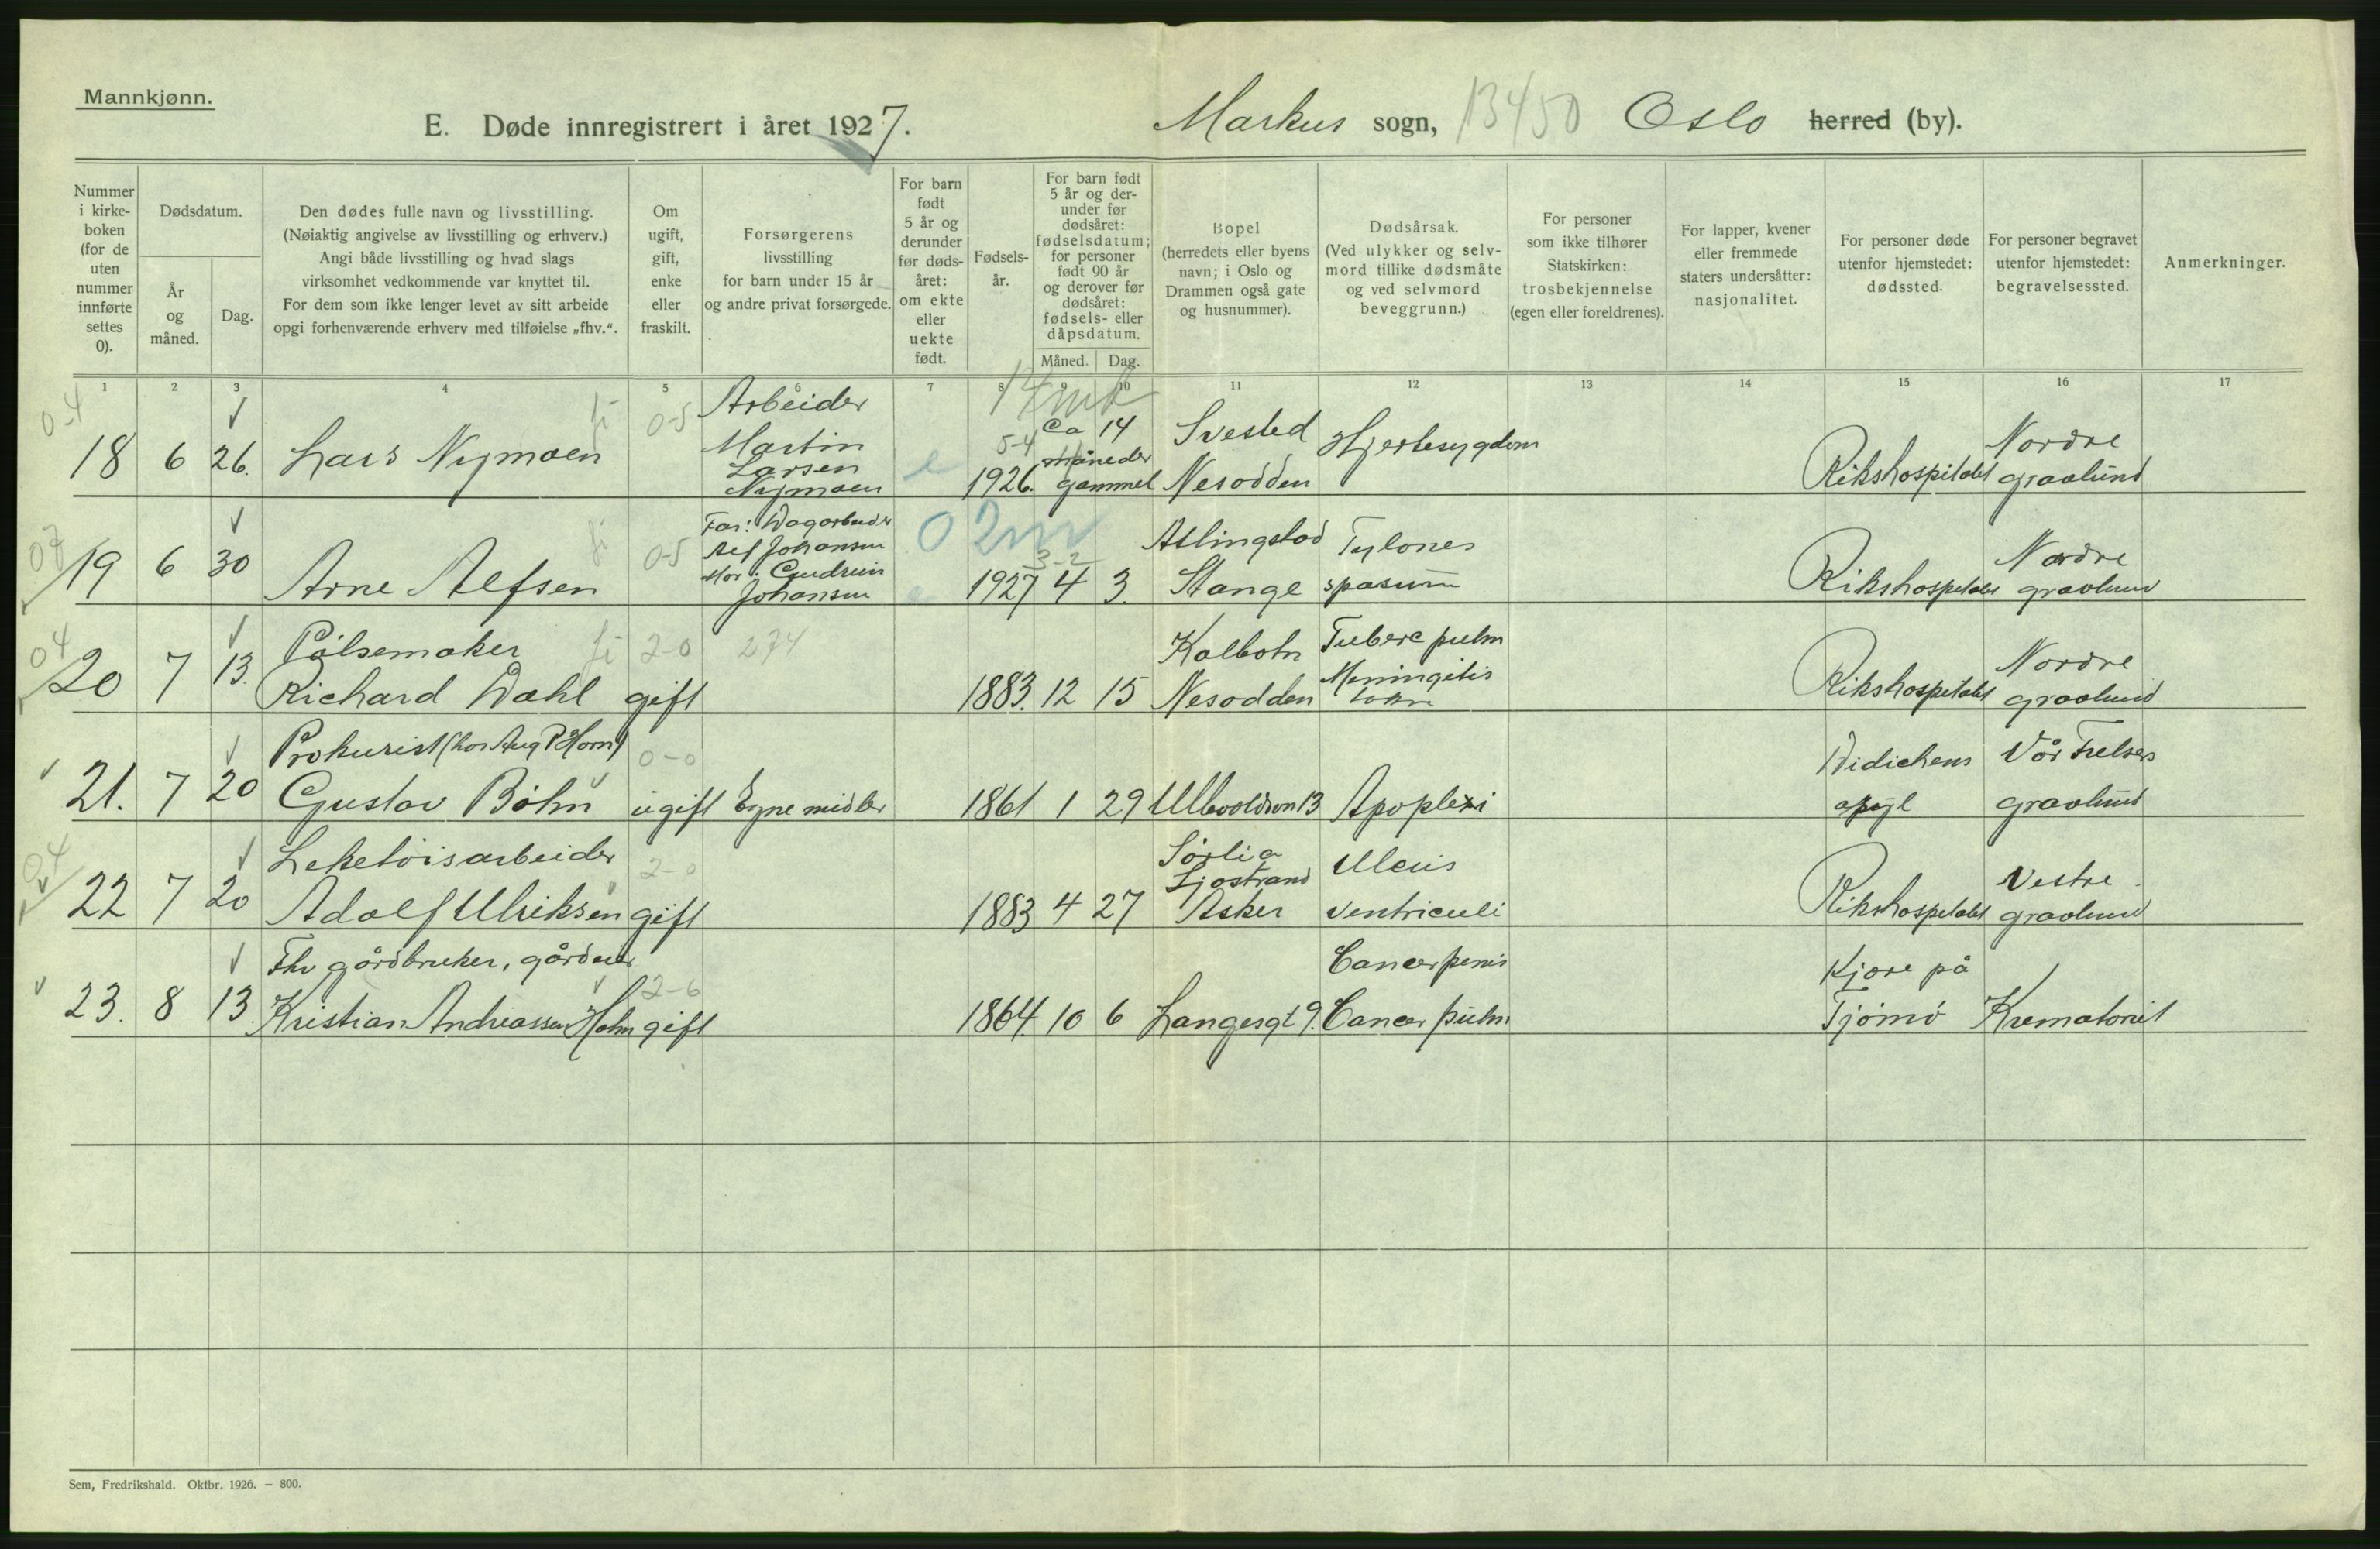 Mannkjønn.
E. Døde innregistrert i året 1927.
Markus sogn, 13450 Oslo herred (by).
Nummer i kirke-boken (for de uten nummer innførte settes 0).
Dødsdatum.
År og måned.
Dag.
Den dødes fulle navn og livsstilling.
(Nøiaktig angivelse av livsstilling og erhverv.)
Angi både livsstilling og hvad slags
virksomhet vedkommende var knyttet til.
For dem som ikke lenger levet av sitt arbeide
opgi forhenværende erhverv med tilføielse „fhv.“.
Om ugift, gift, enke eller fraskilt.
Forsørgerens
livsstilling
for barn under 15 år
og andre privat forsørgede.
For barn født 5 år og derunder før døds-året: om ekte eller uekte født.
Fødsels-år.
For barn født 5 år og der-under før dødsåret: fødselsdatum; for personer født 90 år og derover før dødsåret: fødsels- eller dåpsdatum.
Måned. Dag.
Bopel
(herredets eller byens
navn; i Oslo og
Drammen også gate
og husnummer).
Dødsårsak.
(Ved ulykker og selv-
mord tillike dødsmåte
og ved selvmord
beveggrunn.)
For personer
som ikke tilhører
Statskirken:
trosbekjennelse
(egen eller foreldrenes).
For lapper, kvener
eller fremmede
staters undersåtter:
nasjonalitet.
For personer døde
utenfor hjemstedet:
dødssted.
For personer begravet
utenfor hjemstedet:
begravelsessted.
Anmerkninger.
1 2 3 4 5 6 7 8 9 10 11 12 13 14 15 16 17
0-4
18 6 26. Lars Nymoen
0-5
Arbeider
Martin
Larsen
Nymoen
e
5-4
1926.
Ca 14
måneder
gammel
Svested
Nesodden
Hjertesygdom
Rikshospitalet
Nordre
gravlund
19 6 30 Arne Alfsen
0-5
Far: Dagarbeider
Alf Johansen
Mor: Gudrun
Johansen
e
02m
3-2
1927 4 3.
Stange
spasum
Rikshospitalet
Nordre
gravlund
04
20 7 13.
Pølsemaker
Richard Dahl
2-0
gift
274
1883. 12 15
Kolbotn
Nesodden
Tuberc pulm
Meningitis
Rikshospitalet
Nordre
gravlund
21. 7 20
Prokurist (hos Aug P Horn)
Gustav Bøhn
0-0
ugift
Egne midler
1861 1 29
Ullevoldsvn 13
Apoplexi
Didichens
Vår Frelsers
gravlund
04
22 7 20
Leketøisarbeider
Adolf Ulriksen
2-0
gift
1883 4 27
Sørlia
Asker
Ulcus
ventriculi
Rikshospitalet
Vestre
gravlund
23. 8 13.
Fhv gårdbruker, gårdeier
Kristian Andreassen Holm
2-6
gift
1864. 10 6
Langesgt 9.
Cancer penis
Cancer pulm
Kjøre på
Tjømø
Krematoriet
Sem, Fredrikshald. Oktbr. 1926. — 800.